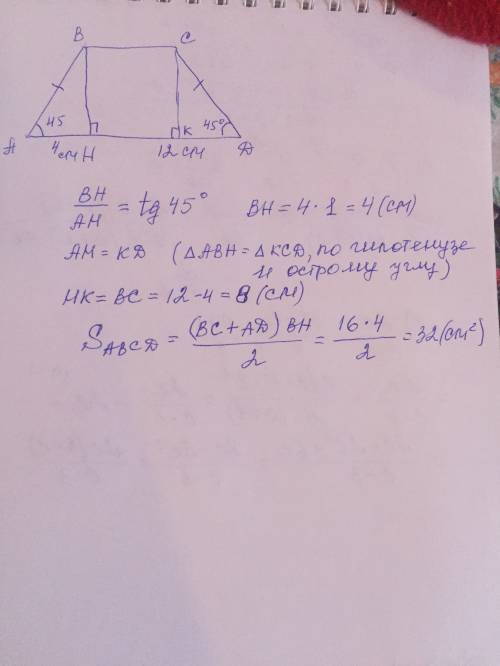 B C
45 45°
A 4см H K 12 см D
BH/AH = tg 45° BH = 4 · 1 = 4 (см)
AH = KD (△ABH = △KCD, по гипотенузе
и острому углу)
HK = BC = 12 - 4 = 8 (см)
S_ABCD = (BC + AD) BH / 2 = 16 · 4 / 2 = 32 (см²)